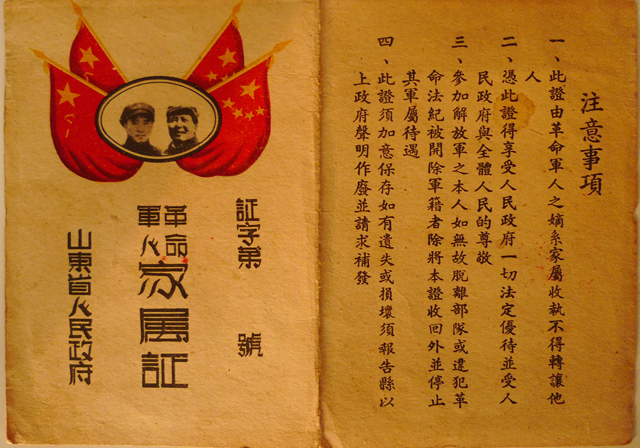 注意事項
一、此證由革命軍人之嫡系家屬收執不得轉讓他
人
二、憑此證得享受人民政府一切法定優待並受人
民政府與全體人民的尊敬
三、參加解放軍之本人如無故脫離部隊或違犯革
命法紀被開除軍籍者除將本證收回外並停止
其軍屬待遇
四、此證須加意保存如有遺失或損壞須報告縣以
上政府聲明作廢並請求補發
証字第 號
革命
軍人
家属証
山東省人民政府